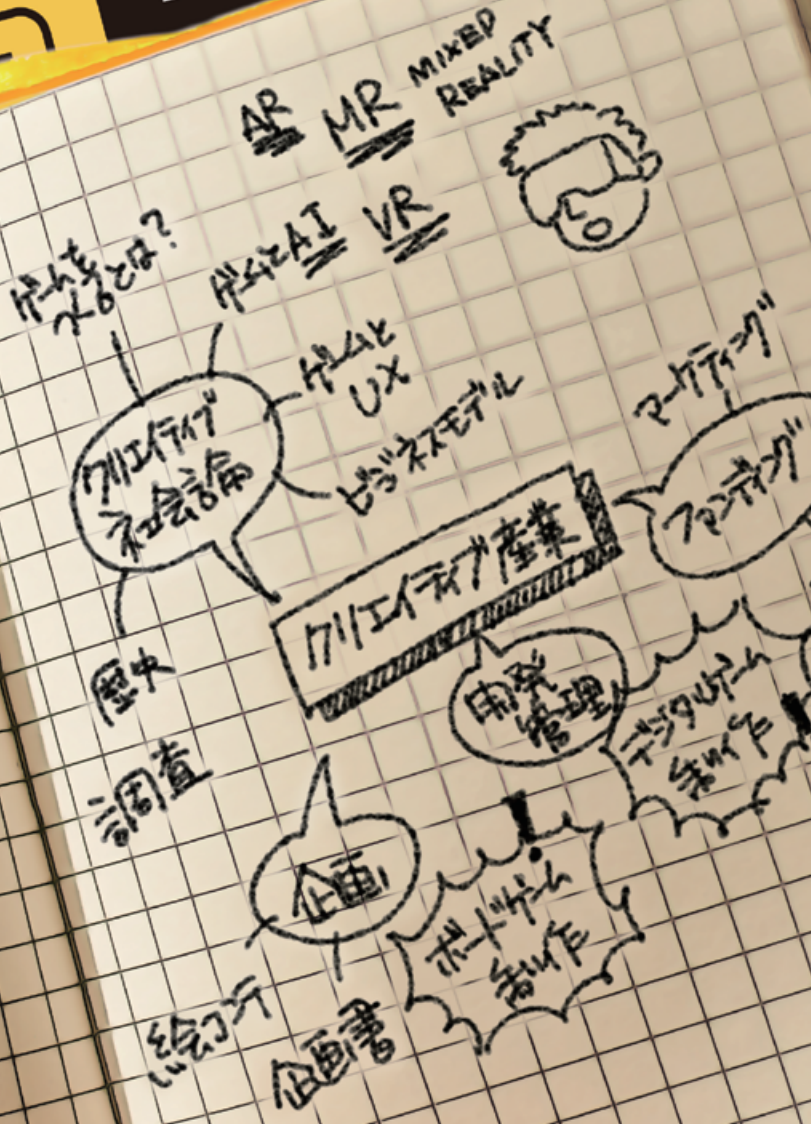 AR
MR
MIXED
REALITY
ゲームを
つくるとは?
ゲームとAI
VR
ゲームと
UX
ビジネスモデル
クリエイティブ
社会論
マーケティング
ファンディング
クリエイティブ産業
歴史
調査
開発
管理
デジタルゲーム
制作
!
企画
ボードゲーム
制作
絵コンテ
企画書